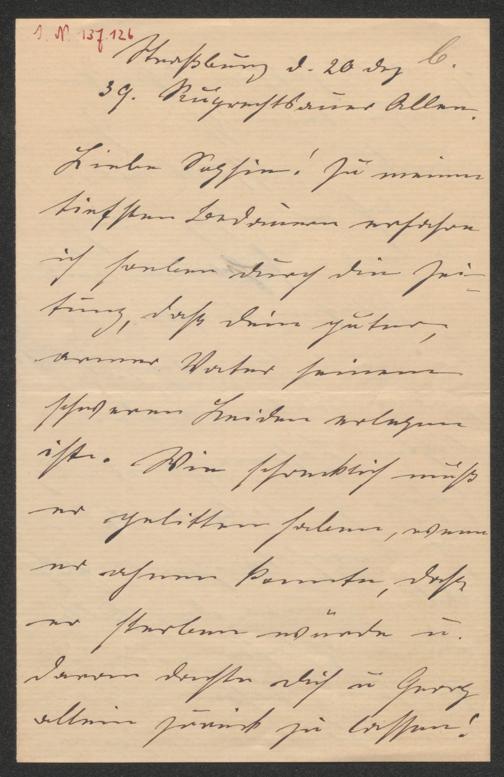 J. N. 137.126
Straßburg d. 20 Dez 6.
39. Ruprechtsauer Allee.
Liebe Sophie! Zu meinem
tiefsten Bedauern erfahre
ich soeben durch die Zei-
tung, daß dein guter,
armer Vater seinem
schweren Leiden erlegen
ist. Wie schrecklich muß
er gelitten haben, wenn
er ahnen konnte, daß
er sterben würde u.
daran dachte dich u Georg
allein zurück zu lassen!